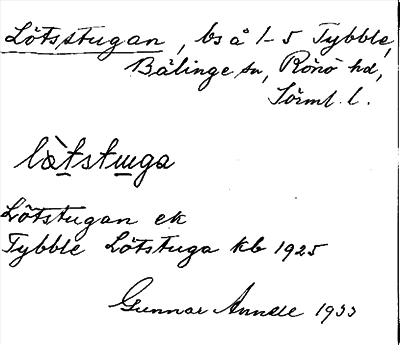 Lötsstugan, bs å 1-5 Tybble,
Bälinge sn, Rönö hd,
Sörml. l.
lö̀tstuga
Lötstugan ek
Tybble Lötstuga kb 1925
Gunnar 1933